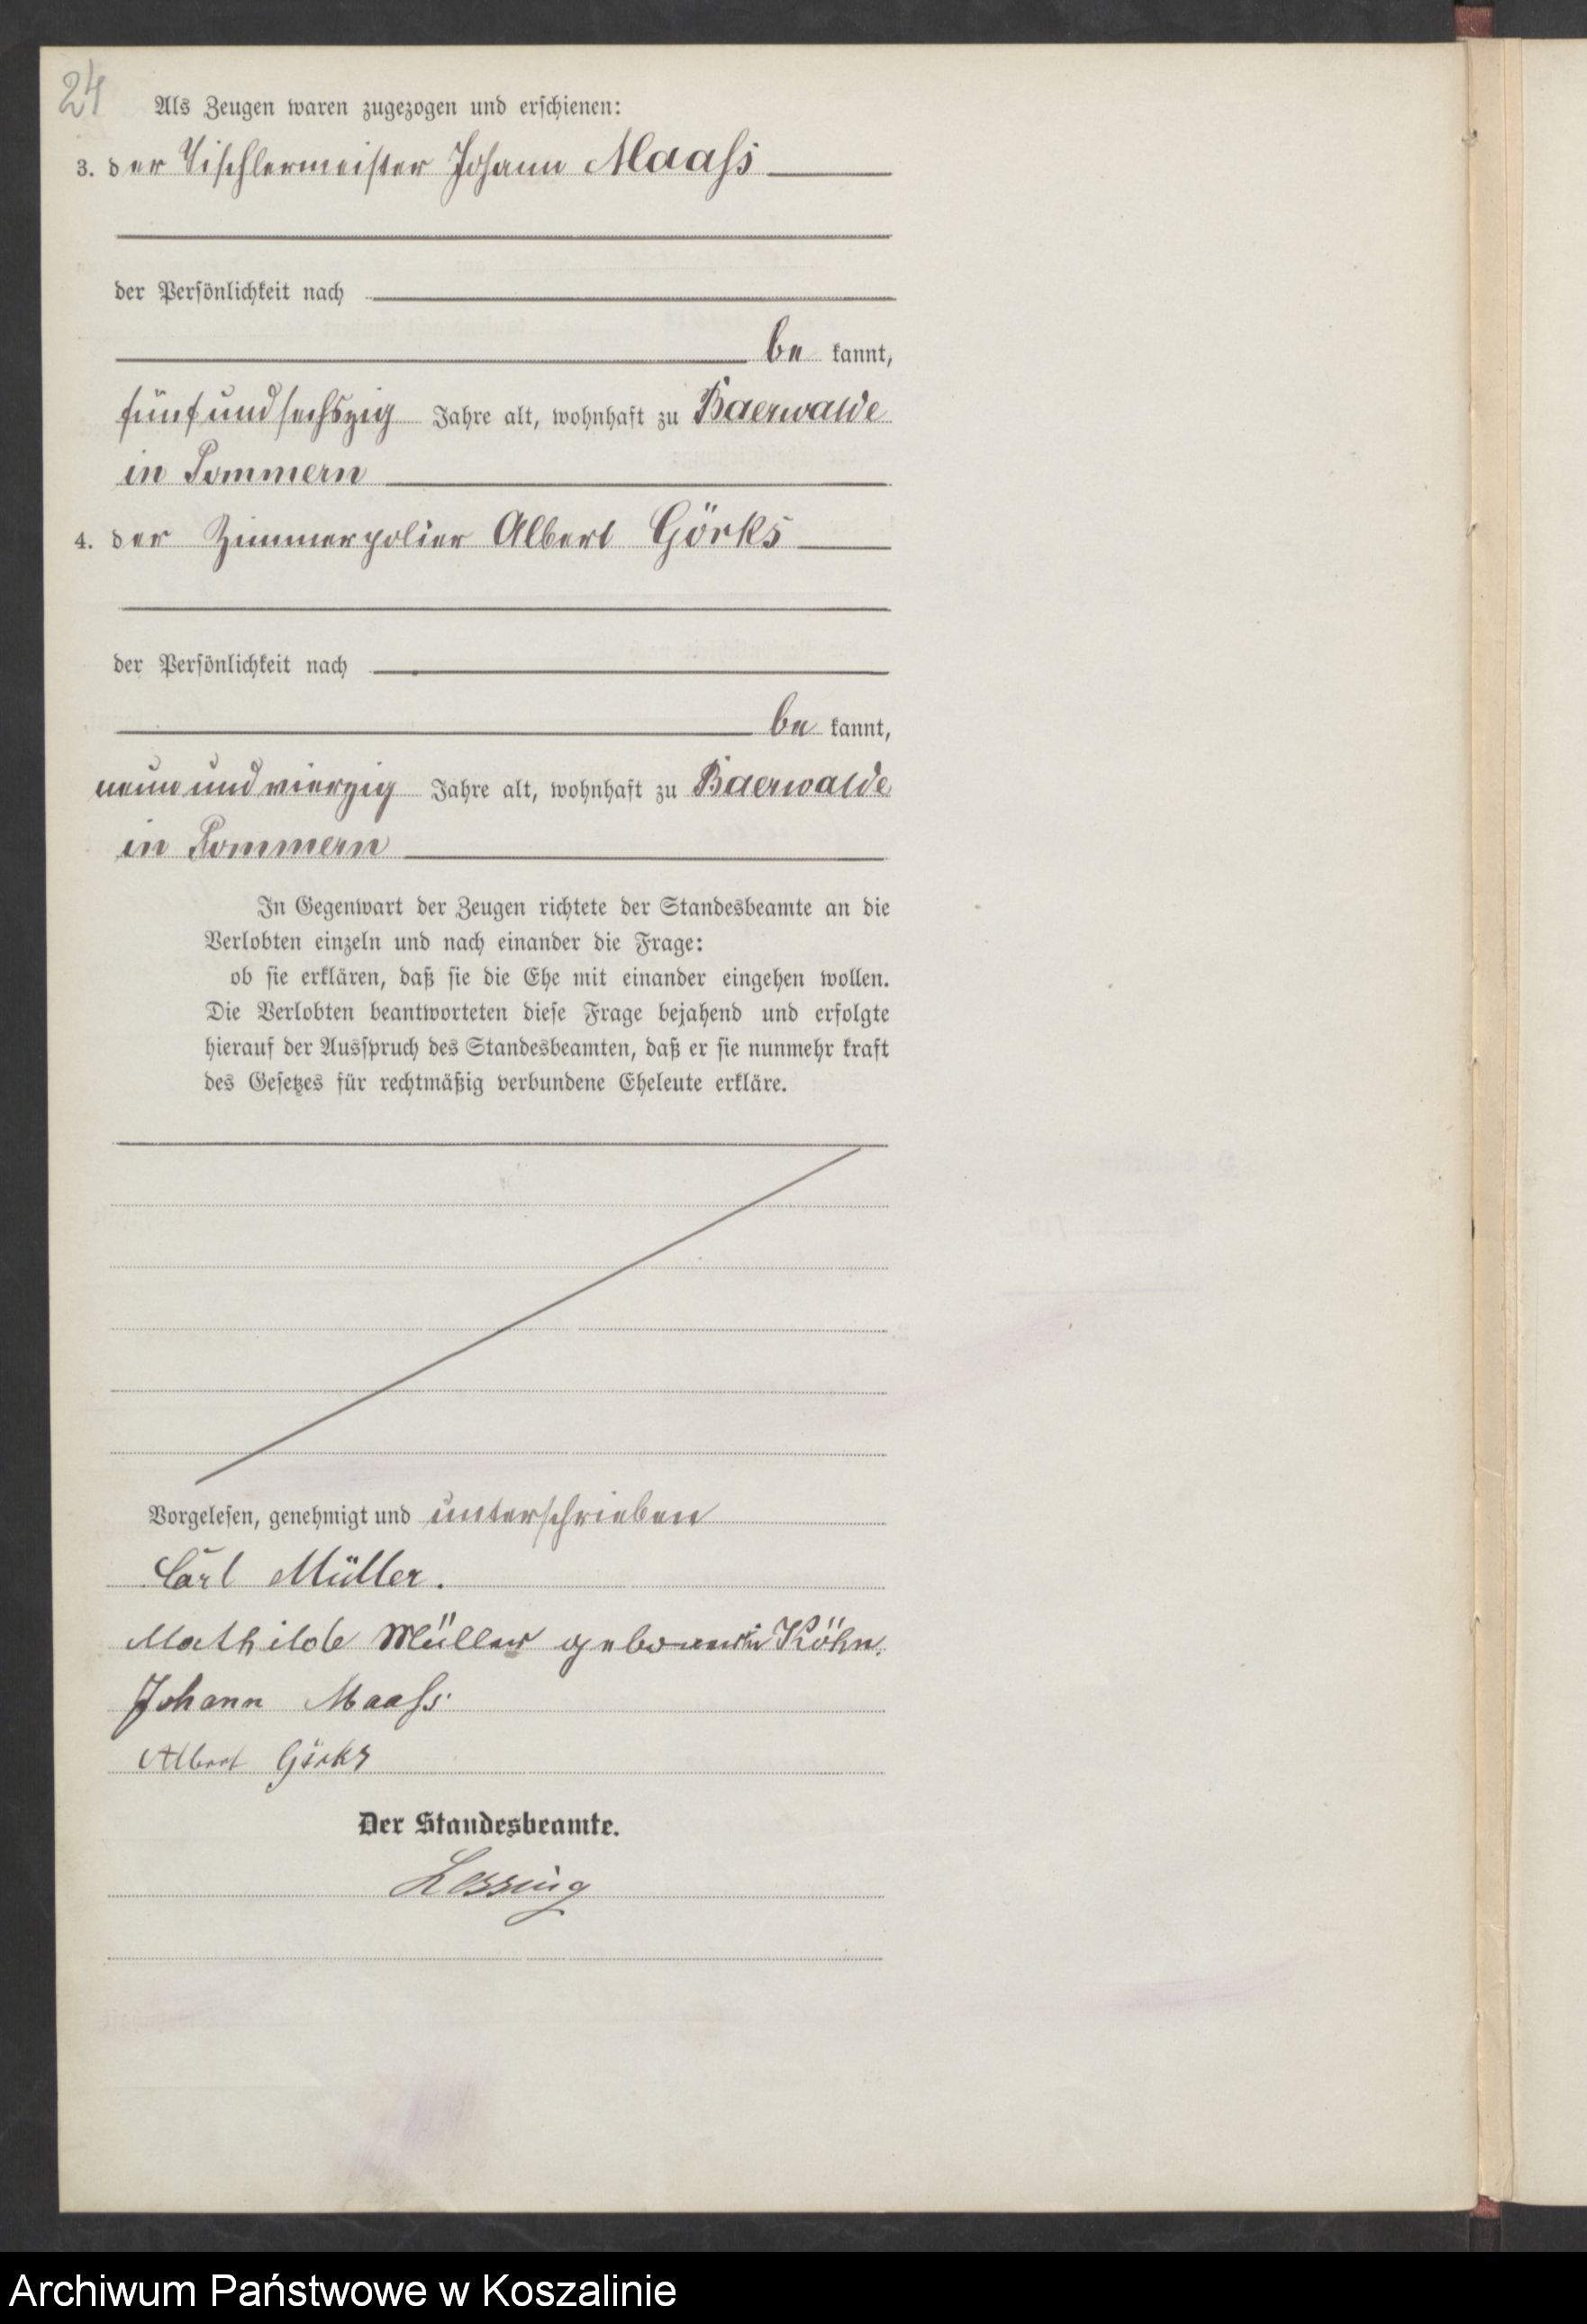 24
Als Zeugen waren zugezogen und erschienen:
3. der Tischlermeister Johann Maaß
der Persönlichkeit nach
be kannt,
fünfundsechszig Jahre alt, wohnhaft zu Baerwalde
in Pommern
4. der Zimmerpolier Albert Görks
der Persönlichkeit nach
be kannt,
neunundvierzig Jahre alt, wohnhaft zu Baerwalde
in Pommern
In Gegenwart der Zeugen richtete der Standesbeamte an die
Verlobten einzeln und nach einander die Frage:
ob sie erklären, daß sie die Ehe mit einander eingehen wollen.
Die Verlobten beantworteten diese Frage bejahend und erfolgte
hierauf der Ausspruch des Standesbeamten, daß er sie nunmehr kraft
des Gesetzes für rechtmäßig verbundene Eheleute erkläre.
Vorgelesen, genehmigt und unterschrieben
Carl Müller.
Mathilde Müller geborene Köhn.
Johann Maaß
Albert Görks
Der Standesbeamte.
Lessing
Archiwum Państwowe w Koszalinie